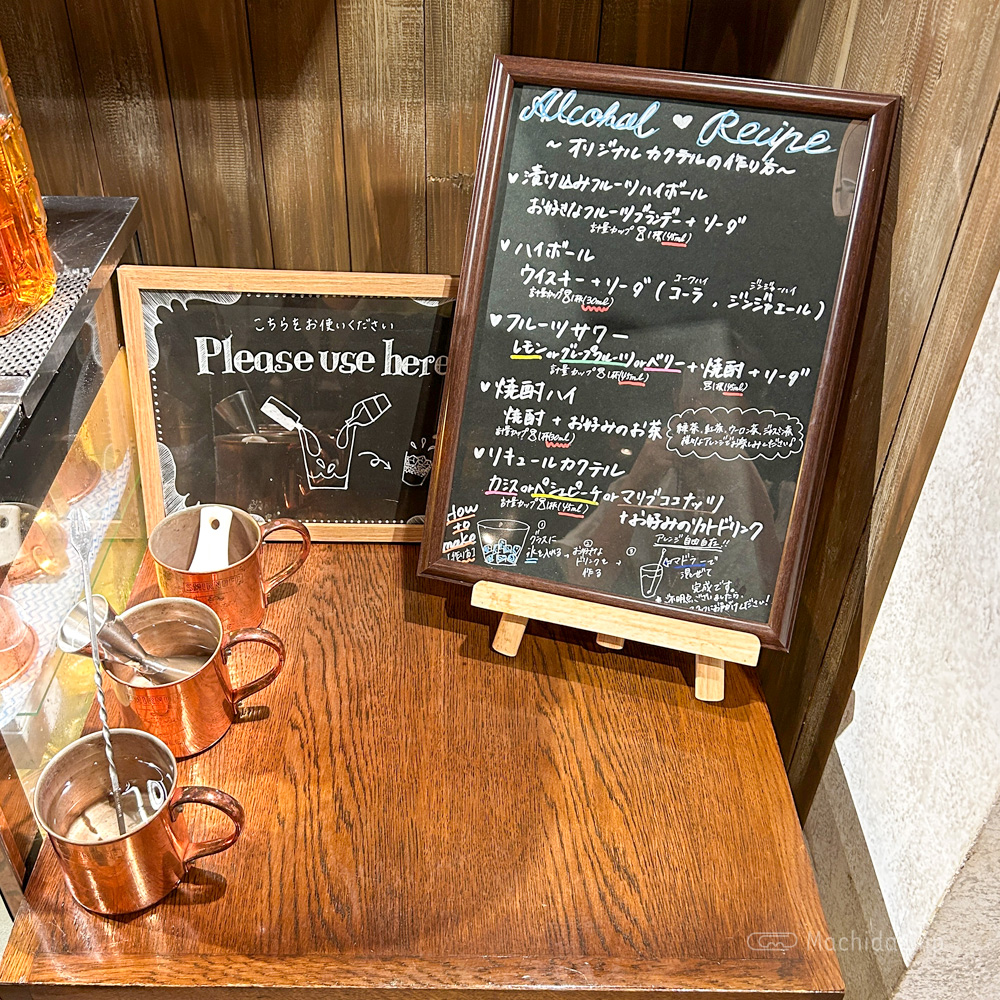 こちらをお使いください
Please use here
Alcohol ♥ Recipe
~オリジナルカクテルの作り方~
♥漬け込みフルーツハイボール
お好きなフルーツブランデー+ソーダ
計量カップ 1杯(45ml)
♥ハイボール
コークハイ
ウイスキー+ソーダ(コーラ、ジンジャエール)
計量カップ 1杯(30ml)
♥フルーツサワー
レモンorグレープフルーツorベリー+焼酎+ソーダ
計量カップ 1杯(45ml)
1杯(45ml)
♥焼酎ハイ
焼酎+お好みのお茶
計量カップ 1杯(30ml)
緑茶、紅茶、ウーロン茶、ジャスミン茶
♥リキュールカクテル
カシスorペシェピーチorマリブココナッツ
計量カップ 1杯(45ml)
+お好みのソフトドリンク
アレンジ自由自在!!
How to make
(作り方)
①
グラスに
氷を入れる
②
お好きな
ドリンクを
作る
③
マドラーで
混ぜて
完成です。